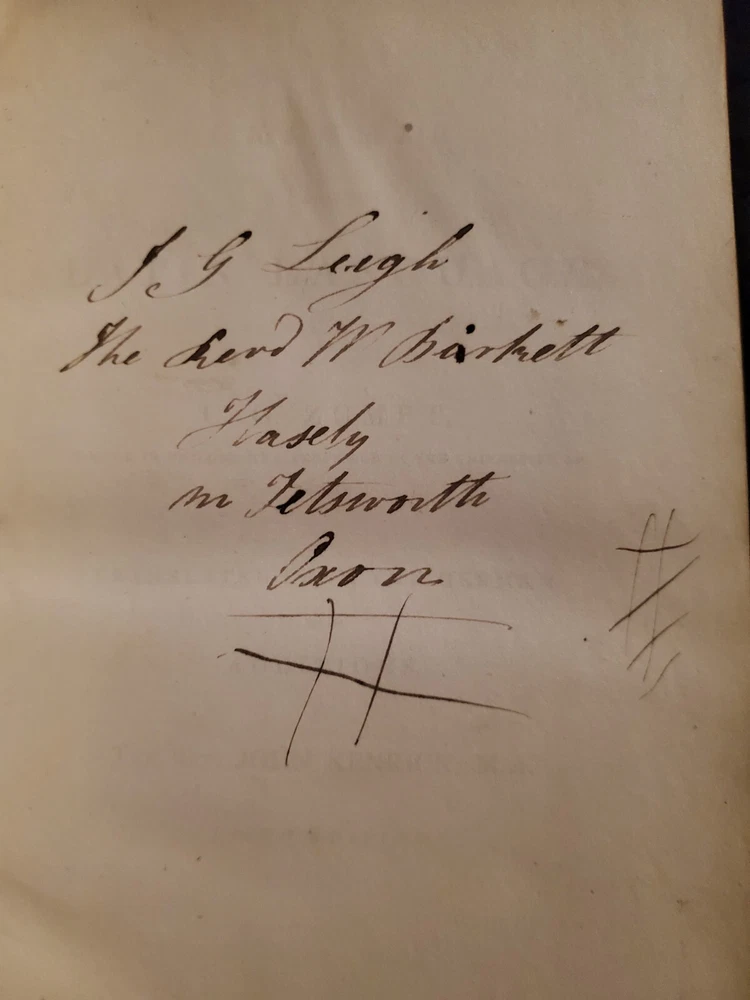 J G Leigh
The Revd W Birkett
Hasely
nr Tetsworth
Oxon